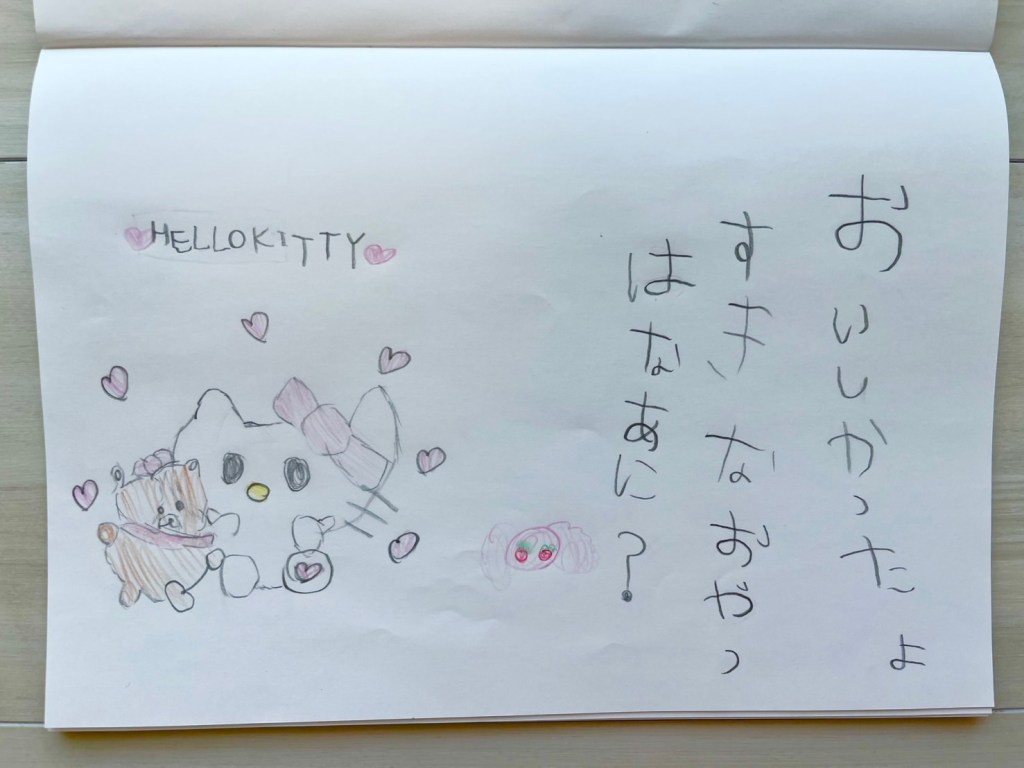 おいしかったよ
すきなおやつ
はなあに?
HELLOKITTY